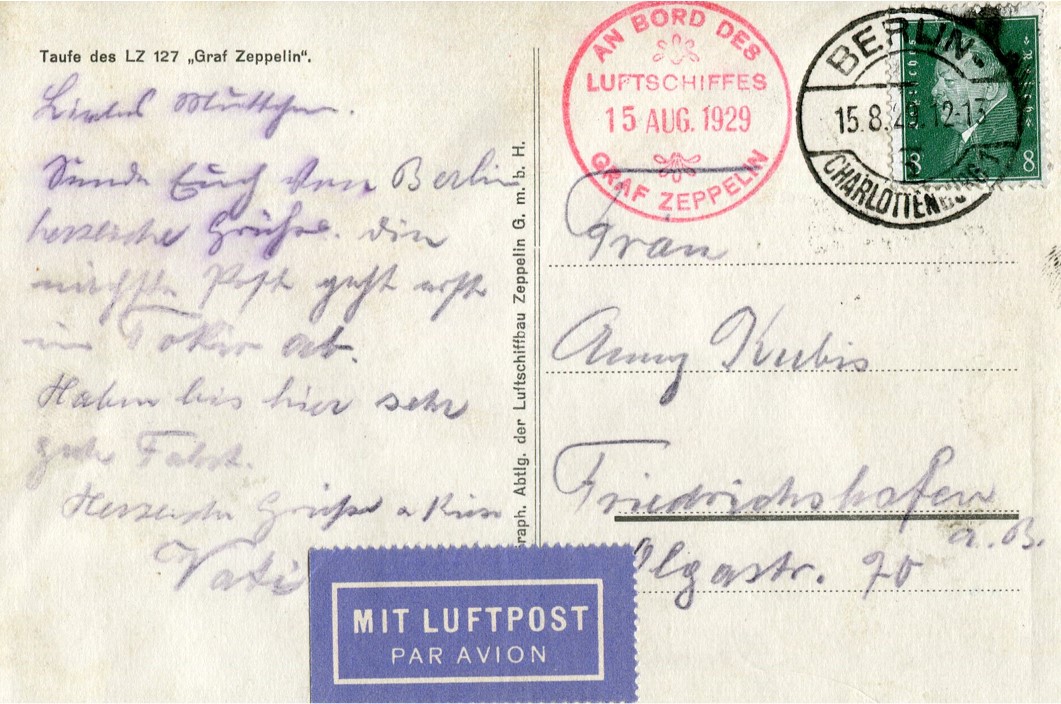 Taufe des LZ 127 „Graf Zeppelin“.
Liebes Muttchen.
Sende Euch von Berlin
herzliche Grüße. Die
nächste Post geht erst
in Tokio ab.
Haben bis hier sehr
gute Fahrt.
Herzliche Grüße u Küsse
Vati
raph. Abtlg. der Luftschiffbau Zeppelin G. m. b. H.
AN BORD DES
LUFTSCHIFFES
15 AUG. 1929
GRAF ZEPPELIN
BERLIN-
15.8.29.12-13
CHARLOTTENBURG 1
8 8
Frau
Anny Kubis
Friedrichshafen
a. B.
Olgastr. 70
MIT LUFTPOST
PAR AVION